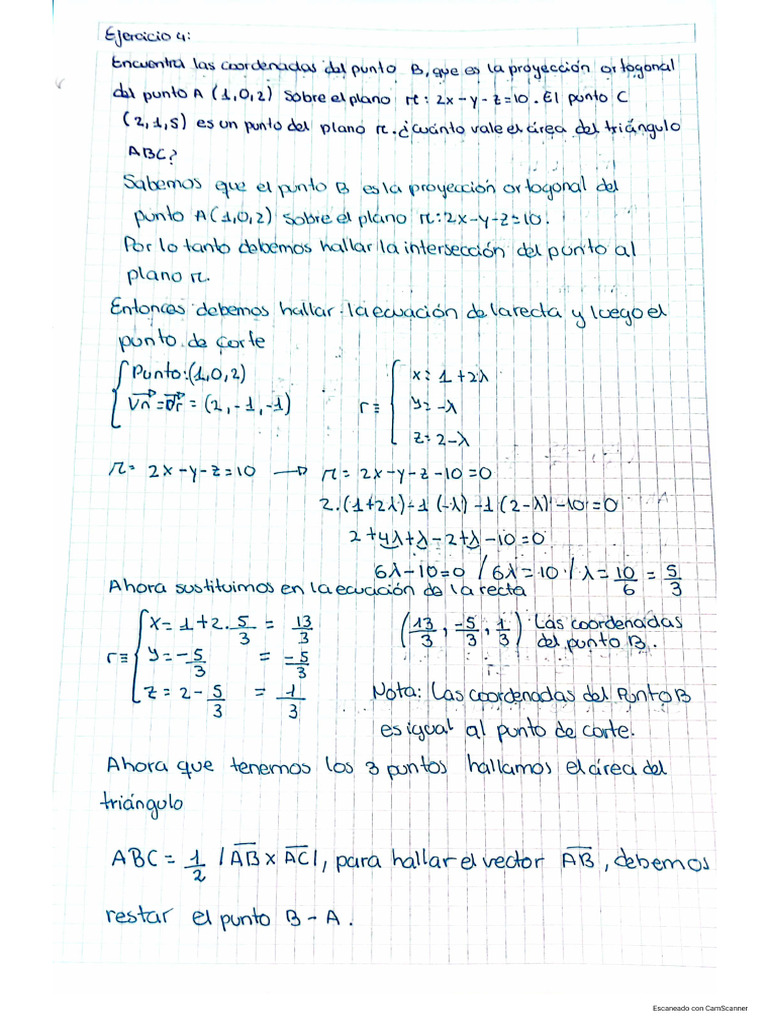 Ejercicio 4:
Encuentra las coordenadas del punto B, que es la proyección ortogonal
del punto A (1,0,2) sobre el plano π: 2x-y-z=10. El punto C
(2,1,5) es un punto del plano π. ¿Cuánto vale el área del triángulo
ABC?
Sabemos que el punto B es la proyección ortogonal del
punto A(1,0,2) sobre el plano π: 2x-y-z=10.
Por lo tanto debemos hallar la intersección del punto al
plano π.
Entonces debemos hallar la ecuación de la recta y luego el
punto de corte
Punto: (1,0,2)
Vn = dr = (2,-1,-1)
r≡ x: 1+2λ
y= -λ
z: 2-λ
π= 2x-y-z=10 → π= 2x-y-z-10=0
2.(1+2λ)-1(-λ)-1(2-λ)-10=0
2+4λ+λ-2+λ-10=0
6λ-10=0 / 6λ=10 / λ=10/6 = 5/3
Ahora sustituimos en la ecuación de la recta
r≡ x=1+2.5/3 = 13/3
y=-5/3 = -5/3
z=2-5/3 = 1/3
(13/3, -5/3, 1/3) Las coordenadas
del punto B.
Nota: Las coordenadas del Punto B
es igual al punto de corte.
Ahora que tenemos los 3 puntos hallamos el área del
triángulo
ABC = 1/2 |AB x AC|, para hallar el vector AB, debemos
restar el punto B - A.
Escaneado con CamScanner